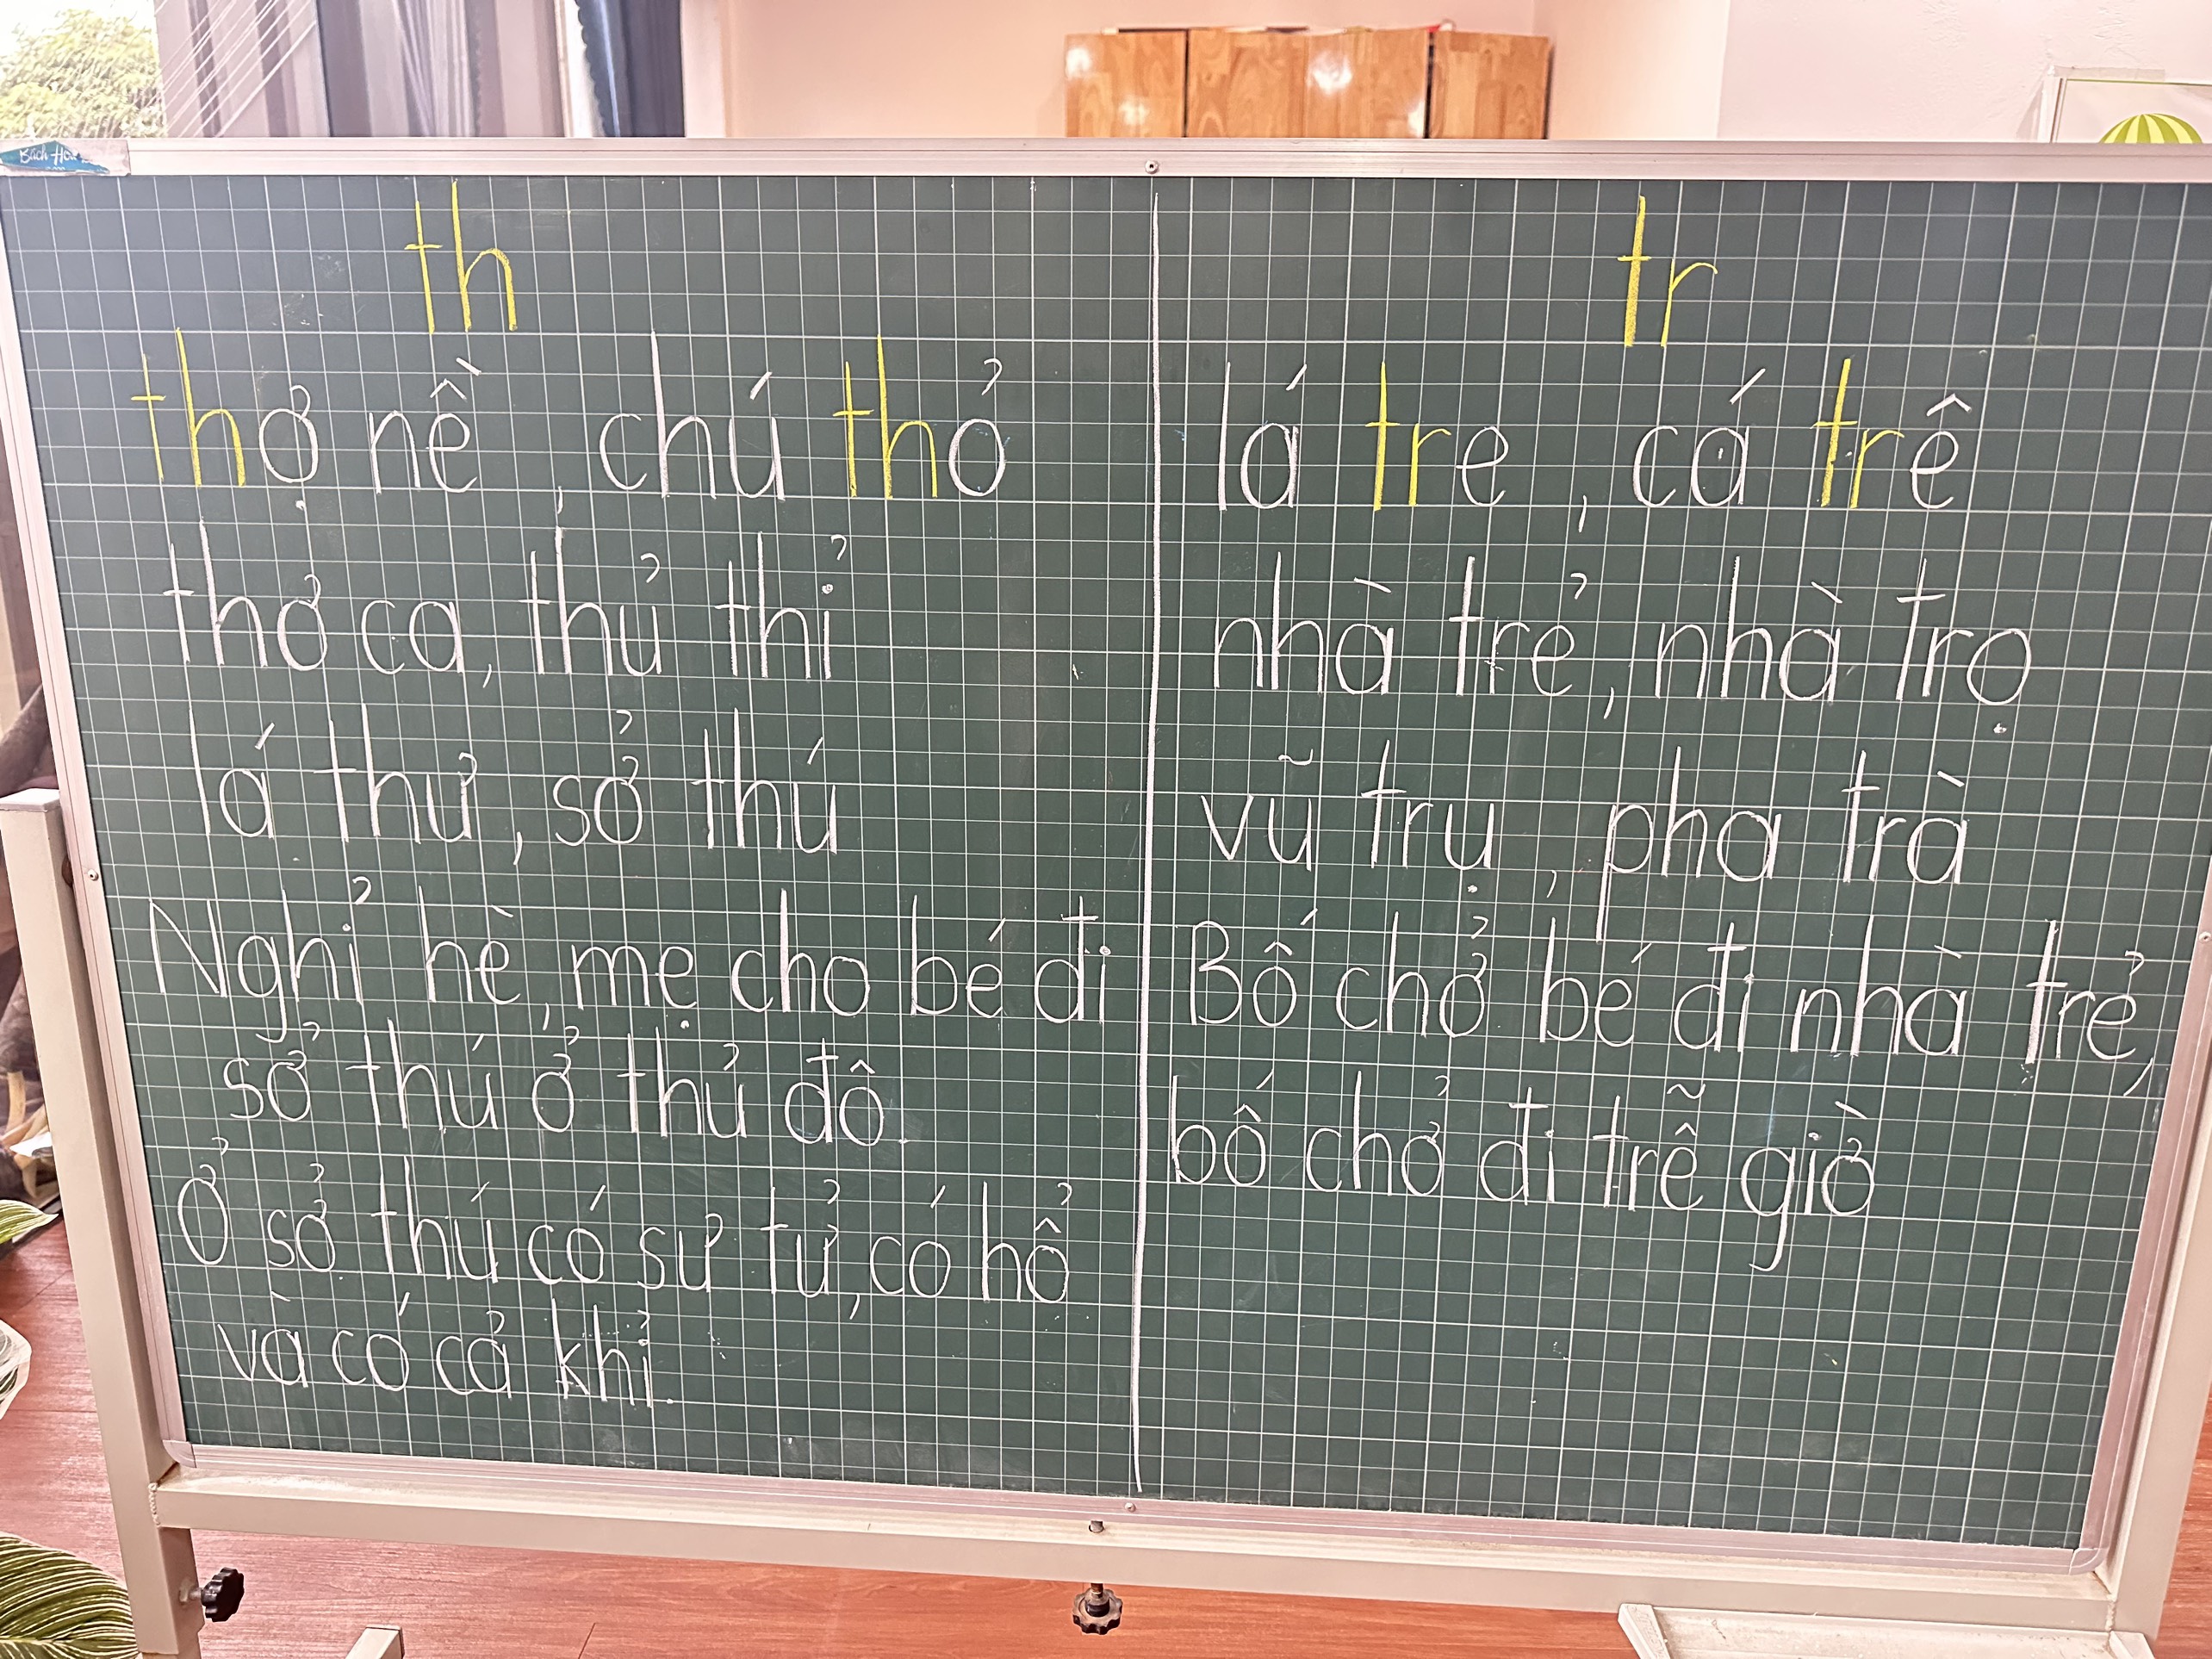 Bách Hoá
th
thợ nề, chú thỏ
thơ ca, thủ thỉ
lá thư, sở thú
Nghỉ hè, mẹ cho bé đi
sở thú ở thủ đô.
Ở sở thú có sư tử, có hổ
và có cả khỉ.
tr
lá tre, cá trê
nhà trẻ, nhà trọ
vũ trụ, pha trà
Bố chở bé đi nhà trẻ,
bố chở đi trễ giờ